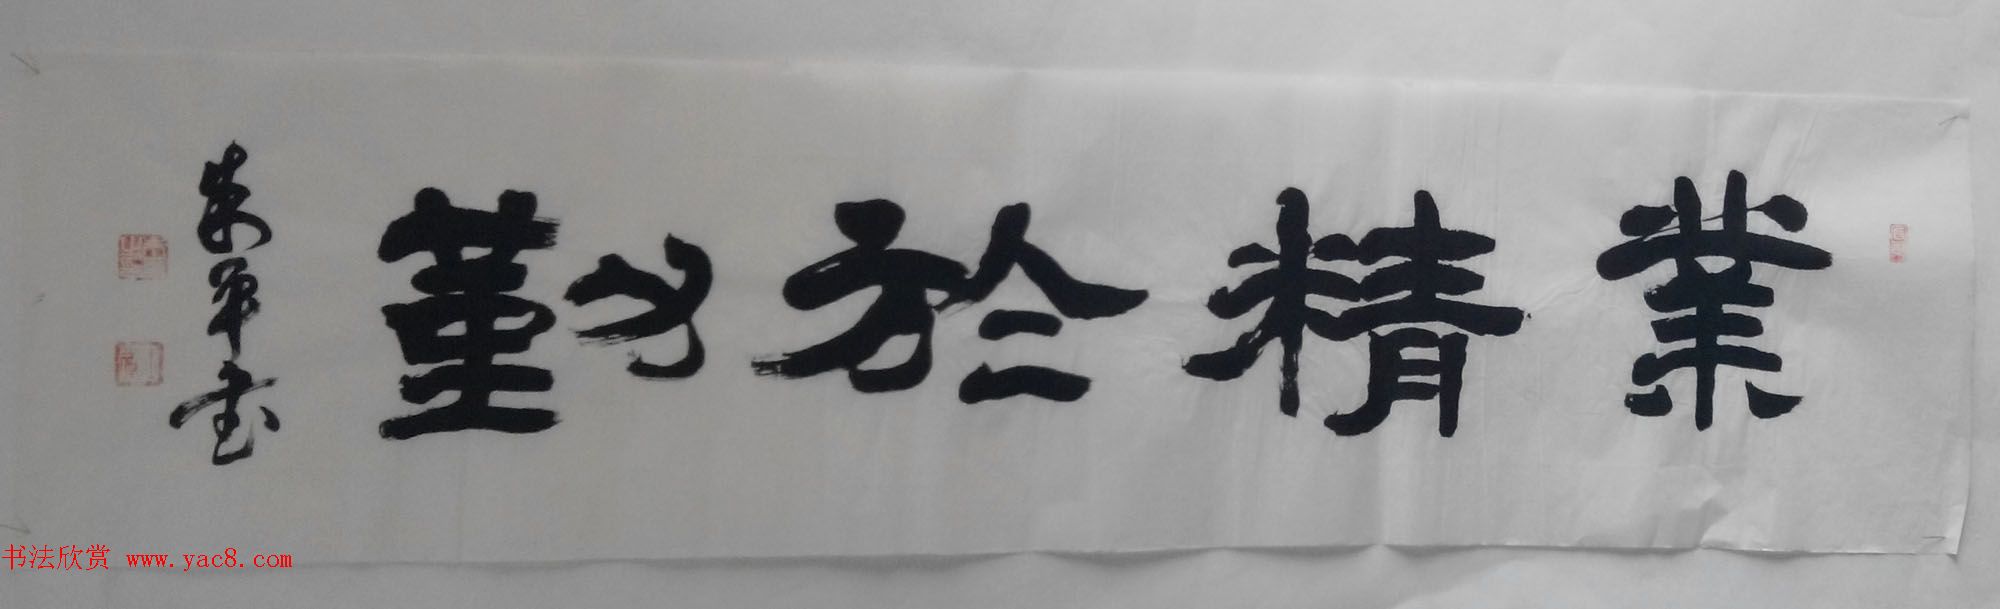 業精於勤
朱平书
书法欣赏 www.yac8.com